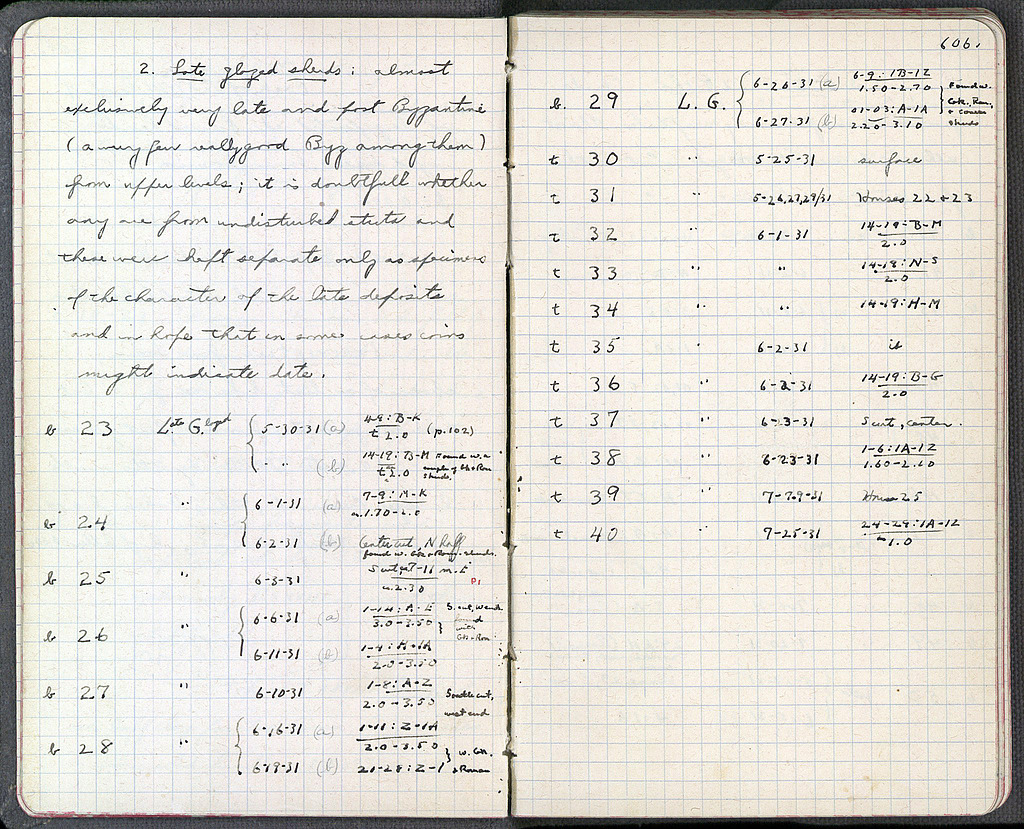 2. Late glazed sherds: almost
exclusively very late and post Byzantine
(a very few really good Byz among them)
from upper levels; it is doubtfull whether
any are from undisturbed strata and
these were kept separate only as specimens
of the character of the late deposits
and in hope that in some cases coins
might indicate date.
b 23 Late Glazed { 5-30-31 (a) 4-9: B-K
t 2.0 (p.102)
" " (b) 14-19: B-M Found w. a
t 2.0 couple of Gk & Rom
sherds.
b 24 " { 6-1-31 (a) 7-9: M-K
1.70-2.0
6-2-31 (b) Center cut, N half
found w. Gk & Rom. sherds.
b 25 " 6-3-31 S cut, 7-11 m. E
2.30
P1
b 26 " { 6-6-31 (a) 1-14: A-E S. cut, W end
3.0-3.50 } found
with
Gk & Rom
6-11-31 (b) 1-4: H-1A
2.0-3.50
b 27 " 6-10-31 1-8: A-Z South cut,
2.0-3.50 west end
b 28 " { 6-16-31 (a) 1-11: Z-1A
2.0-3.50 } w. Gk.
6-19-31 (b) 21-28: Z-1 & Roman
606.
b. 29 L. G. { 6-26-31 (a) 6-9: 1B-1Z
1.50-2.70 } Found w.
6-27-31 (b) 01-03: A-1A Gk, Rom,
2.20-3.10 & coarse
sherds
t 30 " 5-25-31 surface
t 31 " 5-26,27,29/31 Houses 22 & 23
t 32 " 6-1-31 14-19: B-M
2.0
t 33 " " 14-18: N-S
2.0
t 34 " " 14-19: H-M
t 35 " 6-2-31 it
t 36 " 6-2-31 14-19: B-G
2.0
t 37 " 6-3-31 S cut, center.
t 38 " 6-23-31 1-6: 1A-1Z
1.60-2.10
t 39 " 7-29-31 House 25
t 40 " 7-25-31 24-29: 1A-1Z
-1.0